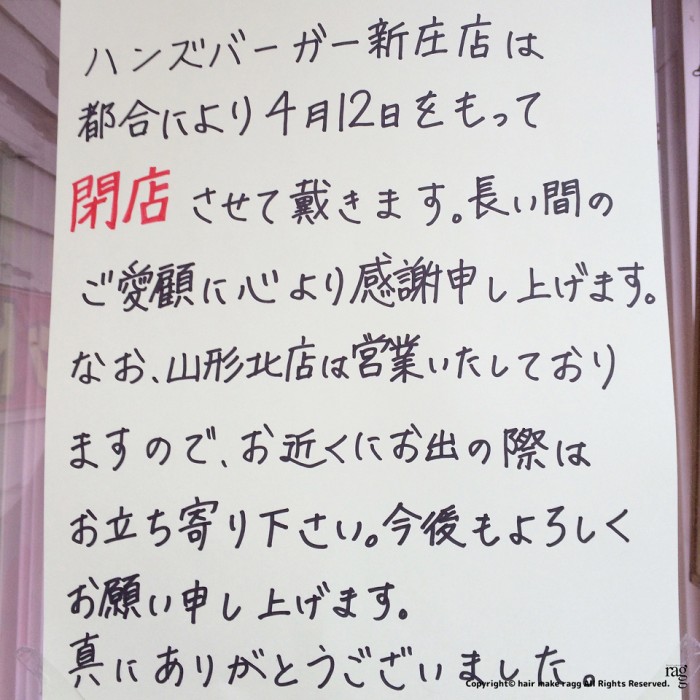 ハンズバーガー新庄店は
都合により4月12日をもって
閉店させて戴きます。長い間の
ご愛顧に心より感謝申し上げます。
なお、山形北店は営業いたしており
ますので、お近くにお出の際は
お立ち寄り下さい。今後もよろしく
お願い申し上げます。
真にありがとうございました。
ragg
Copyright© hair make ragg All Rights Reserved.